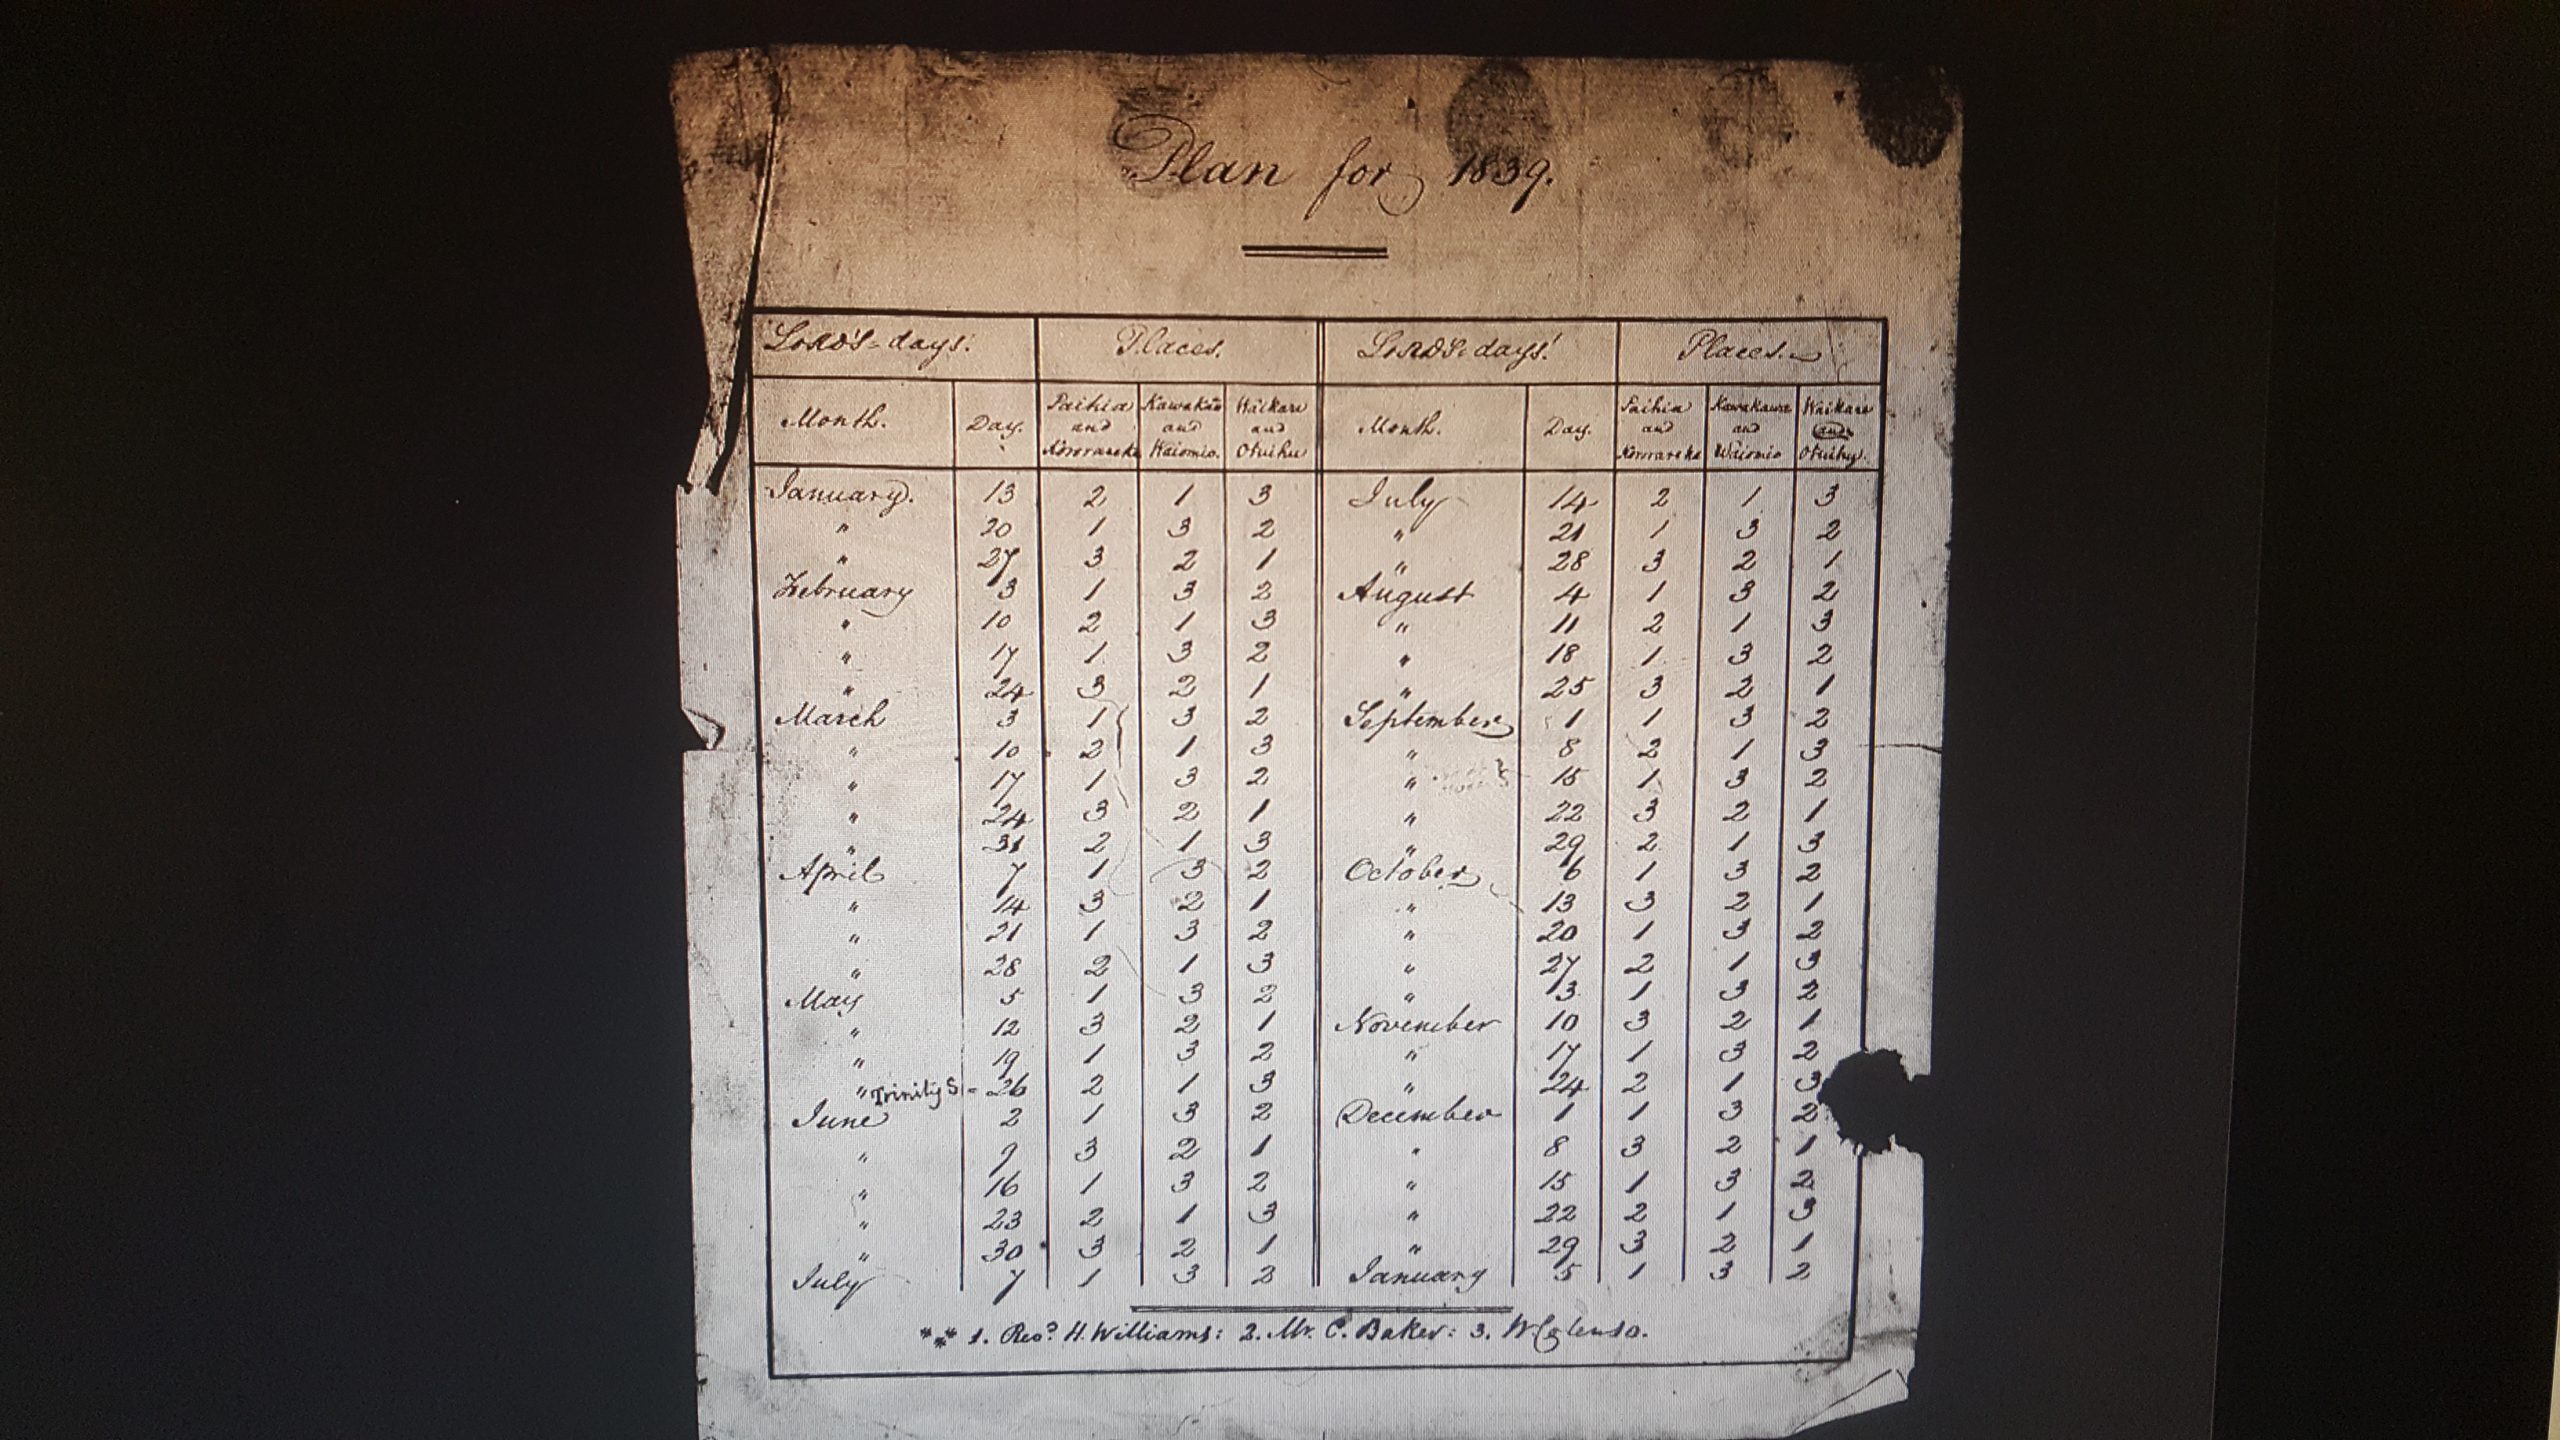 Plan for 1839.
LORD'S-days. Places. LORD'S-days! Places.
Month. Day. Paihia and Kororareka Kawakawa and Waiomio. Waikare and Otuihu Month. Day. Paihia and Kororareka Kawakawa and Waiomio Waikare and Otuihu.
January. 13 2 1 3 July 14 2 1 3
" 20 1 3 2 " 21 1 3 2
" 27 3 2 1 " 28 3 2 1
February 3 1 3 2 August 4 1 3 2
" 10 2 1 3 " 11 2 1 3
" 17 1 3 2 " 18 1 3 2
" 24 3 2 1 " 25 3 2 1
March 3 1 3 2 September 1 1 3 2
" 10 2 1 3 " 8 2 1 3
" 17 1 3 2 " 15 1 3 2
" 24 3 2 1 " 22 3 2 1
" 31 2 1 3 " 29 2 1 3
April 7 1 3 2 October 6 1 3 2
" 14 3 2 1 " 13 3 2 1
" 21 1 3 2 " 20 1 3 2
" 28 2 1 3 " 27 2 1 3
May 5 1 3 2 " 3 1 3 2
" 12 3 2 1 November 10 3 2 1
" 19 1 3 2 " 17 1 3 2
" Trinity S. - 26 2 1 3 " 24 2 1 3
June 2 1 3 2 December 1 1 3 2
" 9 3 2 1 " 8 3 2 1
" 16 1 3 2 " 15 1 3 2
" 23 2 1 3 " 22 2 1 3
" 30 3 2 1 " 29 3 2 1
July 7 1 3 2 January 5 1 3 2
*** 1. Revd. H. Williams: 2. Mr. C. Baker: 3. W Colenso.